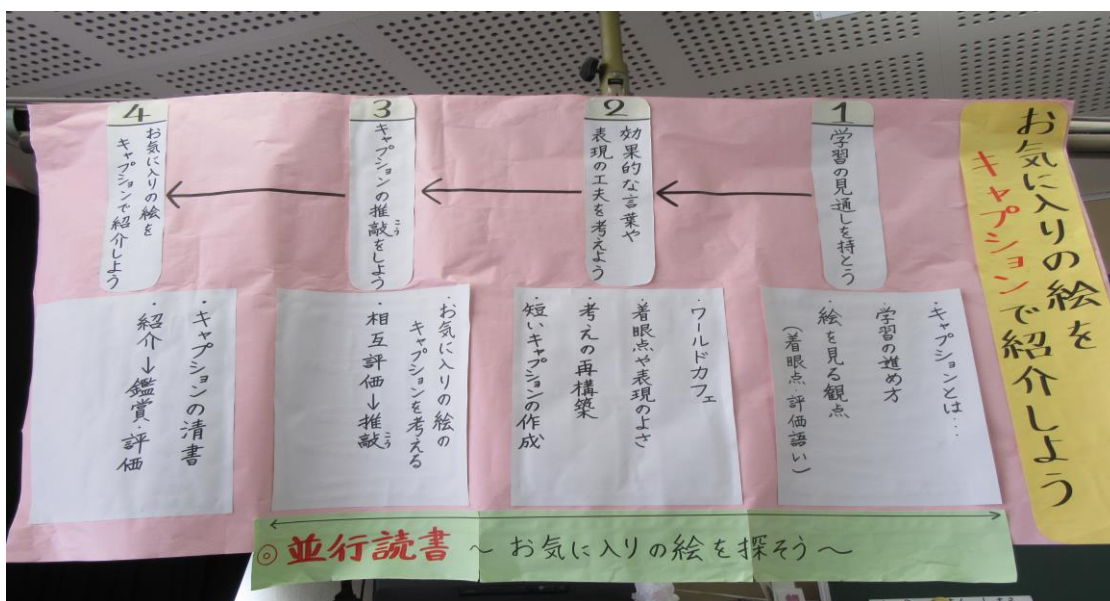 お気に入りの絵を
キャプションで紹介しよう
1
学習の見通しを持とう
・キャプションとは…
学習の進め方
・絵を見る観点
(着眼点・評価語い)
2
効果的な言葉や
表現の工夫を考えよう
・ワールドカフェ
着眼点や表現のよさ
・考えの再構築
・短いキャプションの作成
3
キャプションの推敲をしよう
こう
・お気に入りの絵の
キャプションを考える
・相互評価→推敲
こう
4
お気に入りの絵を
キャプションで紹介しよう
・キャプションの清書
・紹介→鑑賞・評価
◎並行読書 ~ お気に入りの絵を探そう~